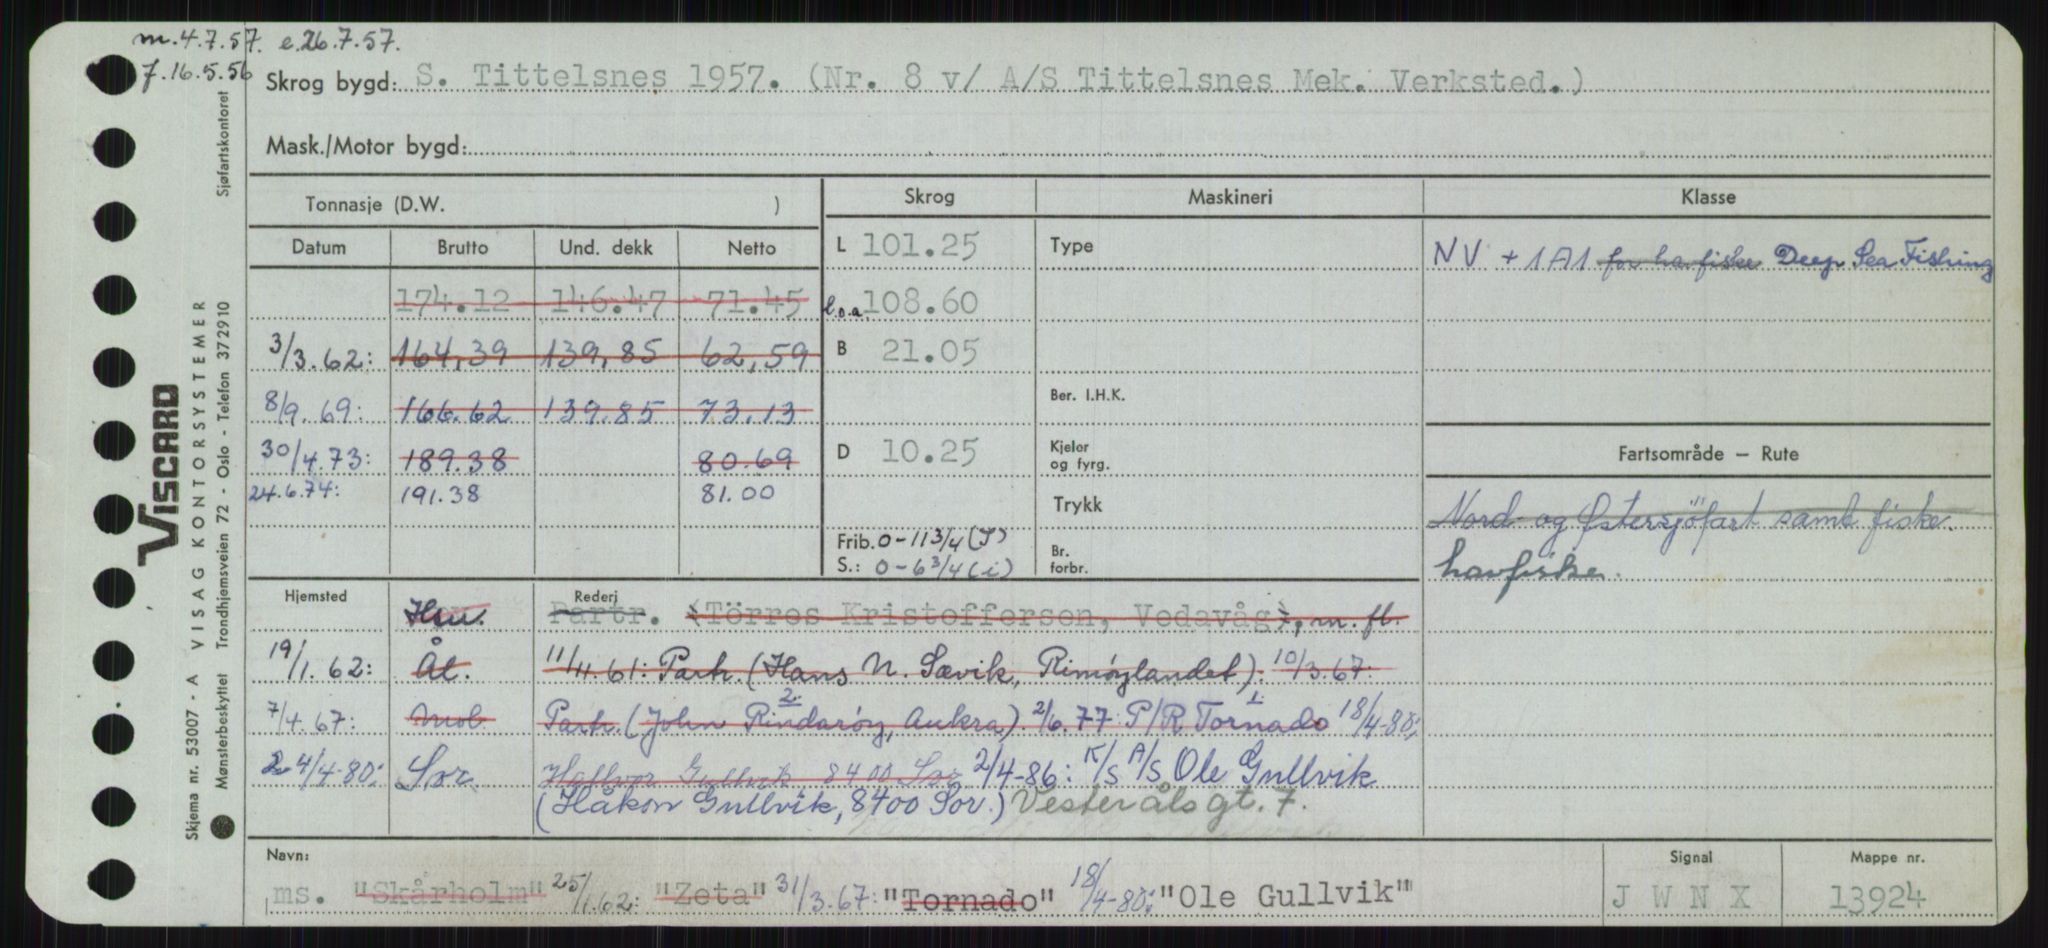 m.4.7.57. e.26.7.57.
f.16.5.56
Skrog bygd: S. Tittelsnes 1957. (Nr. 8 v/ A/S Tittelsnes Mek. Verksted.)
Mask./Motor bygd:
Tonnasje (D.W. )
Skrog Maskineri Klasse
Datum Brutto Und. dekk Netto
L 101.25 Type NV + 1A1 for havfiske Deep Sea Fishing
174.12 146.47 71.45 l.o.a 108.60
3/3.62: 164,39 139,85 62,59 B 21.05
8/9.69: 166.62 139.85 73.13 Ber. I.H.K.
30/4.73: 189.38 80.69 D 10.25 Kjeler og fyrg. Fartsområde – Rute
24.6.74: 191.38 81.00 Trykk Nord- og Østersjöfart samt fiske.
Frib. 0-11 3/4 (T) Br. forbr. havfiske.
S.: 0-6 3/4 (i)
Hjemsted Rederi
Hau. Partr. (Törres Kristoffersen, Vedavåg), m.fl.
19/1.62: Ål. 11/4.61: Partr. (Hans N. Sævik, Remøylandet). 10/3.67:
7/4.67: Mob. Partr. (John Rindarøy, Aukra). 2/6.77: P/R Tornado 18/4-80:
2. 1.
24/4-80: Sor. Hallvor Gullvik 8400 Sor 2/4-86: K/S A/S Ole Gullvik
(Håkon Gullvik, 8400 Sor.) Vesterålsgt. 7.
Navn: Signal Mappe nr.
ms. "Skårholm" 25/1.62: "Zeta" 31/3.67: "Tornado" 18/4-80: "Ole Gullvik" J W N X 13924
Sjøfartskontoret
VISCARD
VISAG KONTORSYSTEMER
Trondhjemsveien 72 - Oslo - Telefon 372910
Skjema nr. 53007 - A
Mønsterbeskyttet